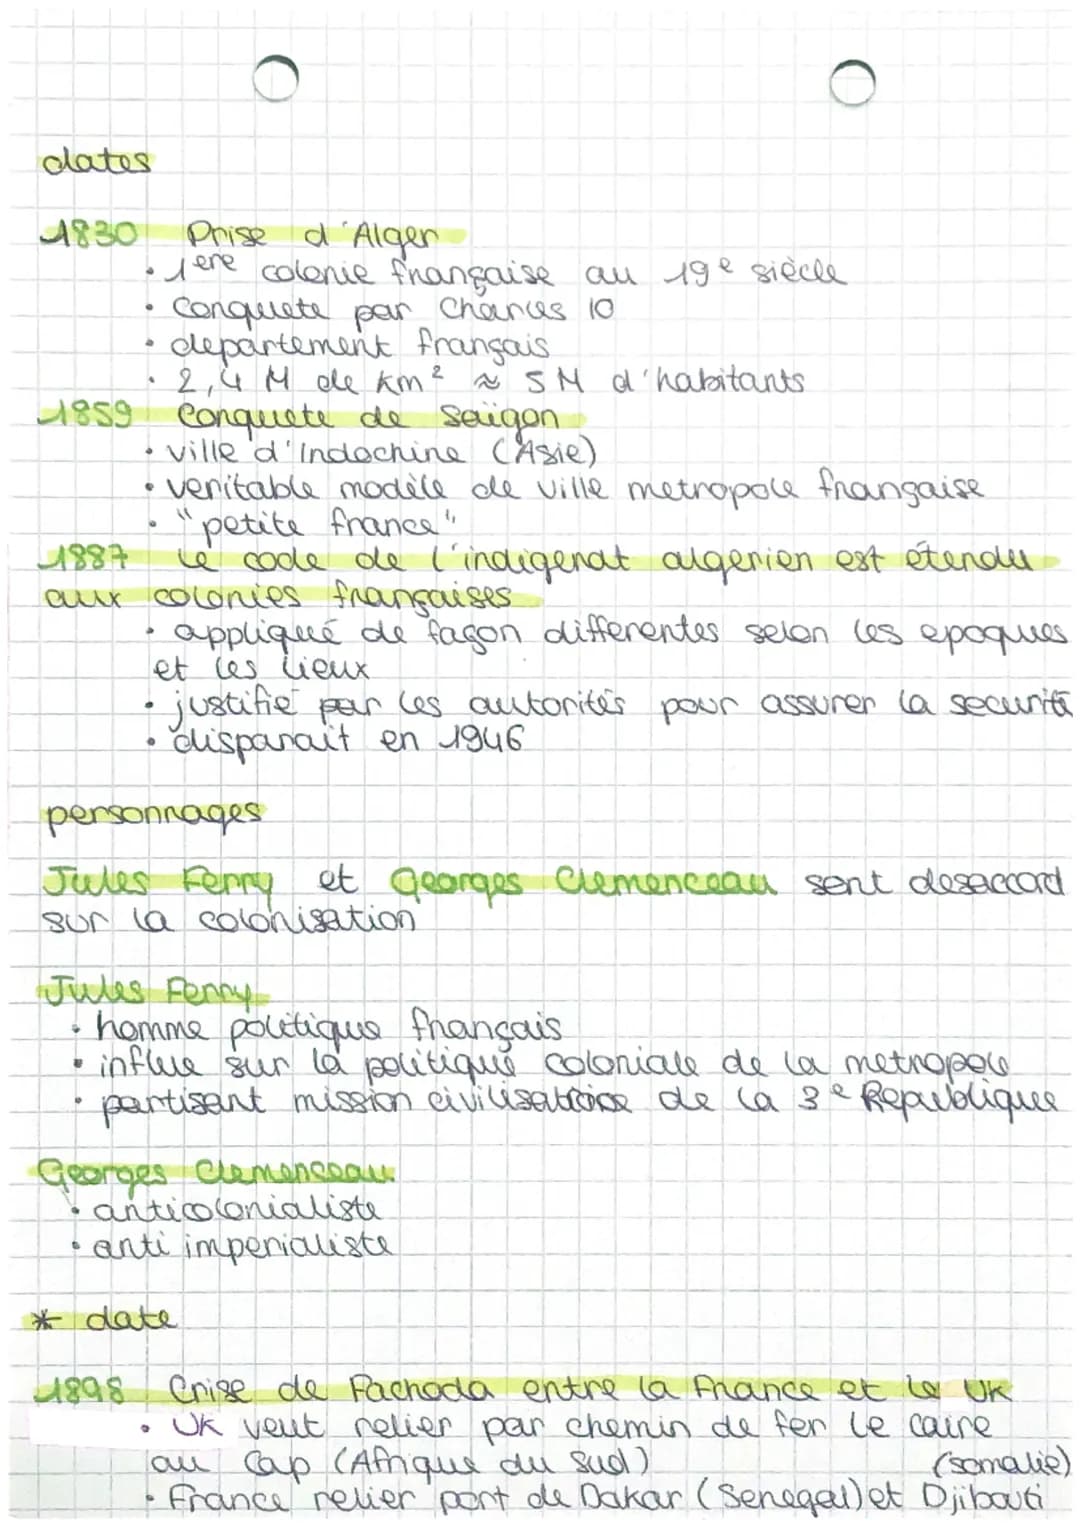 dates
1830 Prise d'Alger
• 1ere colonie française au 19e siècle
• Conquete par Charles 10
• departement français
• 2,4 M de km² ≈ 5M d'habitants
1859 Conquete de Saïgon
• ville d'Indochine (Asie)
• veritable modèle de ville metropole française
• "petite france"
1887 le code de l'indigenat algerien est étendu
aux colonies françaises
• appliqué de façon differentes selon les epoques
et les lieux
• justifié par les autorités pour assurer la securité
• disparait en 1946
personnages
Jules Ferry et Georges Clemenceau sont desaccord
sur la colonisation
Jules Ferry
• homme politique français
• influe sur la politique coloniale de la metropole
• partisant mission civilisatrice de la 3e Republique
Georges Clemenceau
• anticolonialiste
• anti imperialiste
* date
1898 Crise de Fachoda entre la France et le UK
• UK veut relier par chemin de fer le caire
au Cap (Afrique du Sud) (somalie)
• France relier port de Dakar (Senegal) et Djibouti